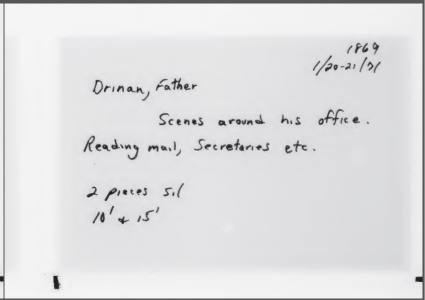 1869
1/20-21/71
Drinan, Father
Scenes around his office.
Reading mail, Secretaries etc.
2 pieces sil
10' & 15'